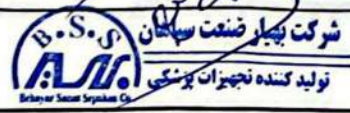 شرکت بهیار صنعت سپاهان
تولید کننده تجهیزات پزشکی
B.S.S
Behayar Sanat Sepahan Co